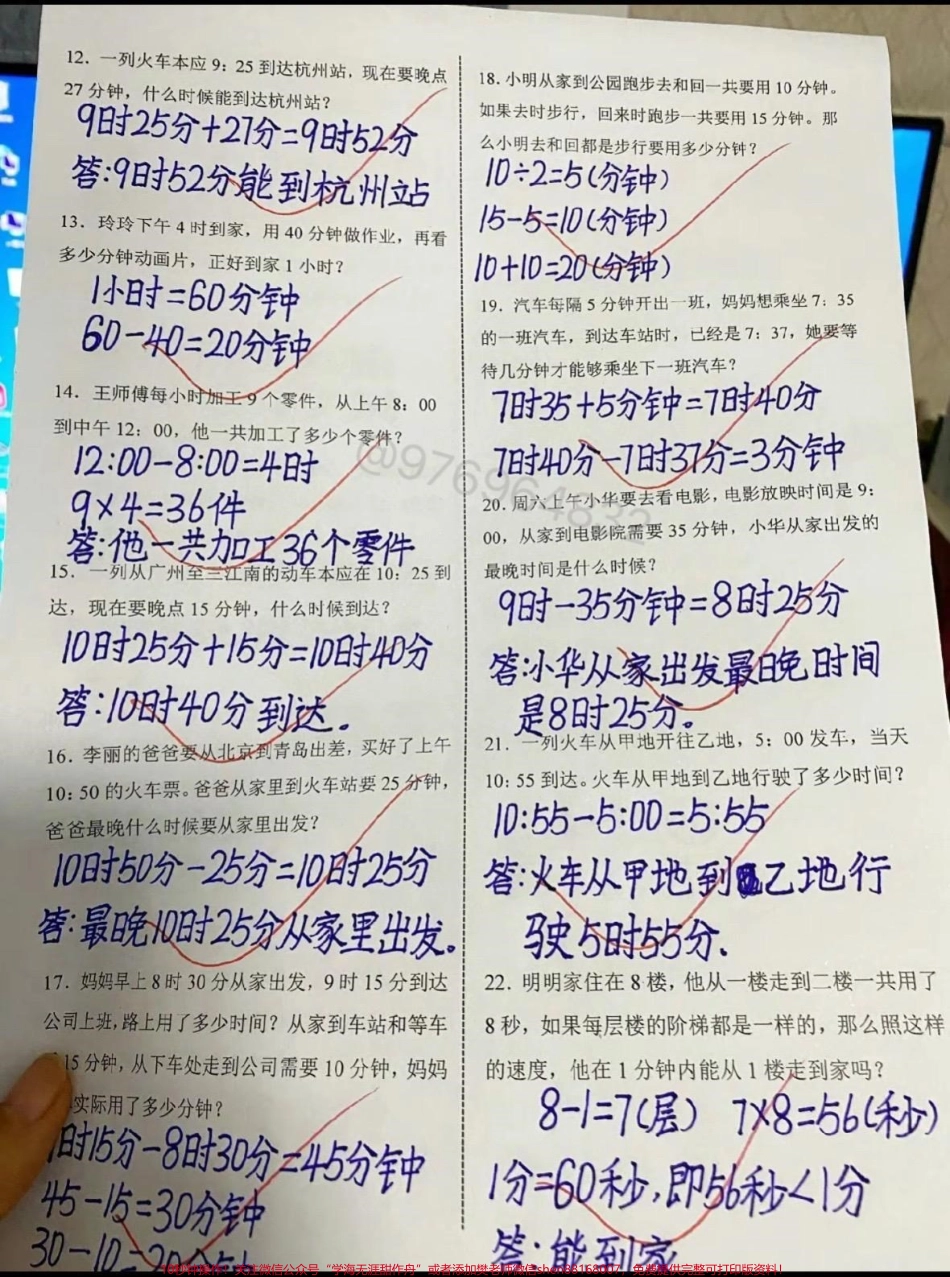 12. 一列火车本应 9：25 到达杭州站，现在要晚点
27 分钟，什么时候能到达杭州站？
9时25分+27分=9时52分
答:9时52分能到杭州站
13. 玲玲下午 4 时到家，用 40 分钟做作业，再看
多少分钟动画片，正好到家 1 小时？
1小时=60分钟
60-40=20分钟
14. 王师傅每小时加工 9 个零件，从上午 8：00
到中午 12：00，他一共加工了多少个零件？
12:00-8:00=4时
9×4=36件
答:他一共加工36个零件
15. 一列从广州至三江南的动车本应在 10：25 到
达，现在要晚点 15 分钟，什么时候到达？
10时25分+15分=10时40分
答:10时40分到达。
16. 李丽的爸爸要从北京到青岛出差，买好了上午
10：50 的火车票。爸爸从家里到火车站要 25 分钟，
爸爸最晚什么时候要从家里出发？
10时50分-25分=10时25分
答:最晚10时25分从家里出发。
17. 妈妈早上 8 时 30 分从家出发，9 时 15 分到达
公司上班，路上用了多少时间？从家到车站和等车
15 分钟，从下车处走到公司需要 10 分钟，妈妈
实际用了多少分钟？
时15分-8时30分=45分钟
45-15=30分钟
30-10=20分钟
18. 小明从家到公园跑步去和回一共要用 10 分钟。
如果去时步行，回来时跑步一共要用 15 分钟。那
么小明去和回都是步行要用多少分钟？
10÷2=5(分钟)
15-5=10(分钟)
10+10=20(分钟)
19. 汽车每隔 5 分钟开出一班，妈妈想乘坐 7：35
的一班汽车，到达车站时，已经是 7：37，她要等
待几分钟才能够乘坐下一班汽车？
7时35+5分钟=7时40分
7时40分-7时37分=3分钟
20. 周六上午小华要去看电影，电影放映时间是 9：
00，从家到电影院需要 35 分钟，小华从家出发的
最晚时间是什么时候？
9时-35分钟=8时25分
答:小华从家出发最晚时间
是8时25分。
21. 一列火车从甲地开往乙地，5：00 发车，当天
10：55 到达。火车从甲地到乙地行驶了多少时间？
10:55-5:00=5:55
答:火车从甲地到乙地行
驶5时55分.
22. 明明家住在 8 楼，他从一楼走到二楼一共用了
8 秒，如果每层楼的阶梯都是一样的，那么照这样
的速度，他在 1 分钟内能从 1 楼走到家吗？
8-1=7(层) 7×8=56(秒)
1分=60秒,即56秒<1分
答:能到家